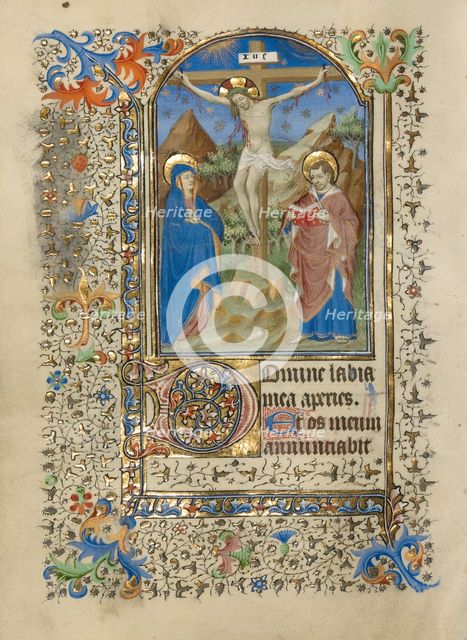 Heritage Heritage
Heritage Heritage Heritage
Domine labia
mea aperies.
Et os meum
annunciabit